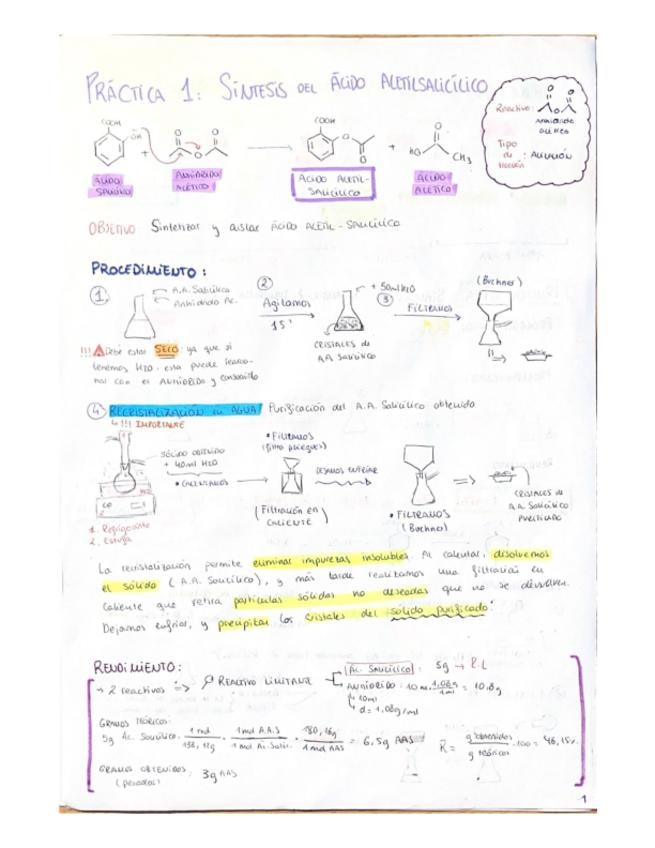 PRÁCTICA 1: SÍNTESIS DEL ÁCIDO ACETILSALICÍLICO
Reactivo:
ANHÍDRIDO
ACÉTICO
Tipo
de
reacción : ACILACIÓN
COOH
OH
+
COOH
+
HO
CH3
ÁCIDO
SALICÍLICO
ANHÍDRIDO
ACÉTICO
ÁCIDO ACETIL-
SALICÍLICO
ÁCIDO
ACÉTICO
OBJETIVO Sintetizar y aislar ÁCIDO ACETIL-SALICÍLICO
PROCEDIMIENTO:
1.
A.A. Salicílico
Anhídrido Ac.
2
Agitamos
15'
+ 50ml H2O
CRISTALES de
A.A Salicílico
3
FILTRAMOS
(Büchner)
!!! Debe estar SECO: ya que si
tenemos H2O, esta puede reaccio-
nar con el ANHÍDRIDO y consumirlo
4. RECRISTALIZACIÓN en AGUA! Purificación del A.A. Salicílico obtenido
!!! IMPORTANTE
SÓLIDO OBTENIDO
+ 40ml H2O
• CALENTAMOS
1. Refrigerante
2. Estufa
• FILTRAMOS
(filtro pliegues)
(Filtración en
CALIENTE)
DEJAMOS ENFRIAR
• FILTRAMOS
(Büchner)
CRISTALES de
A.A Salicílico
PURIFICADO
La recristalización permite eliminar impurezas insolubles. Al calentar, disolvemos
el sólido (A.A. Salicílico), y más tarde realizamos una filtración en
caliente que retira partículas sólidas no deseadas que no se disuelven.
Dejamos enfriar, y precipitan los cristales del sólido purificado.
RENDIMIENTO:
→ 2 reactivos => REACTIVO LIMITANTE
Ac. SALICÍLICO : 5g → R.L
ANHÍDRIDO : 10 ml · 1,08g / 1ml = 10,8g
10ml
d = 1,08g/ml
GRAMOS TEÓRICOS:
5g Ac. Salicílico · 1 mol / 138,12g · 1 mol A.A.S / 1 mol Ac. Salic. · 180,16g / 1 mol AAS = 6,5g AAS
R = g obtenidos / g teóricos · 100 = 46,15%
GRAMOS OBTENIDOS: 3g AAS
(pesados)
1